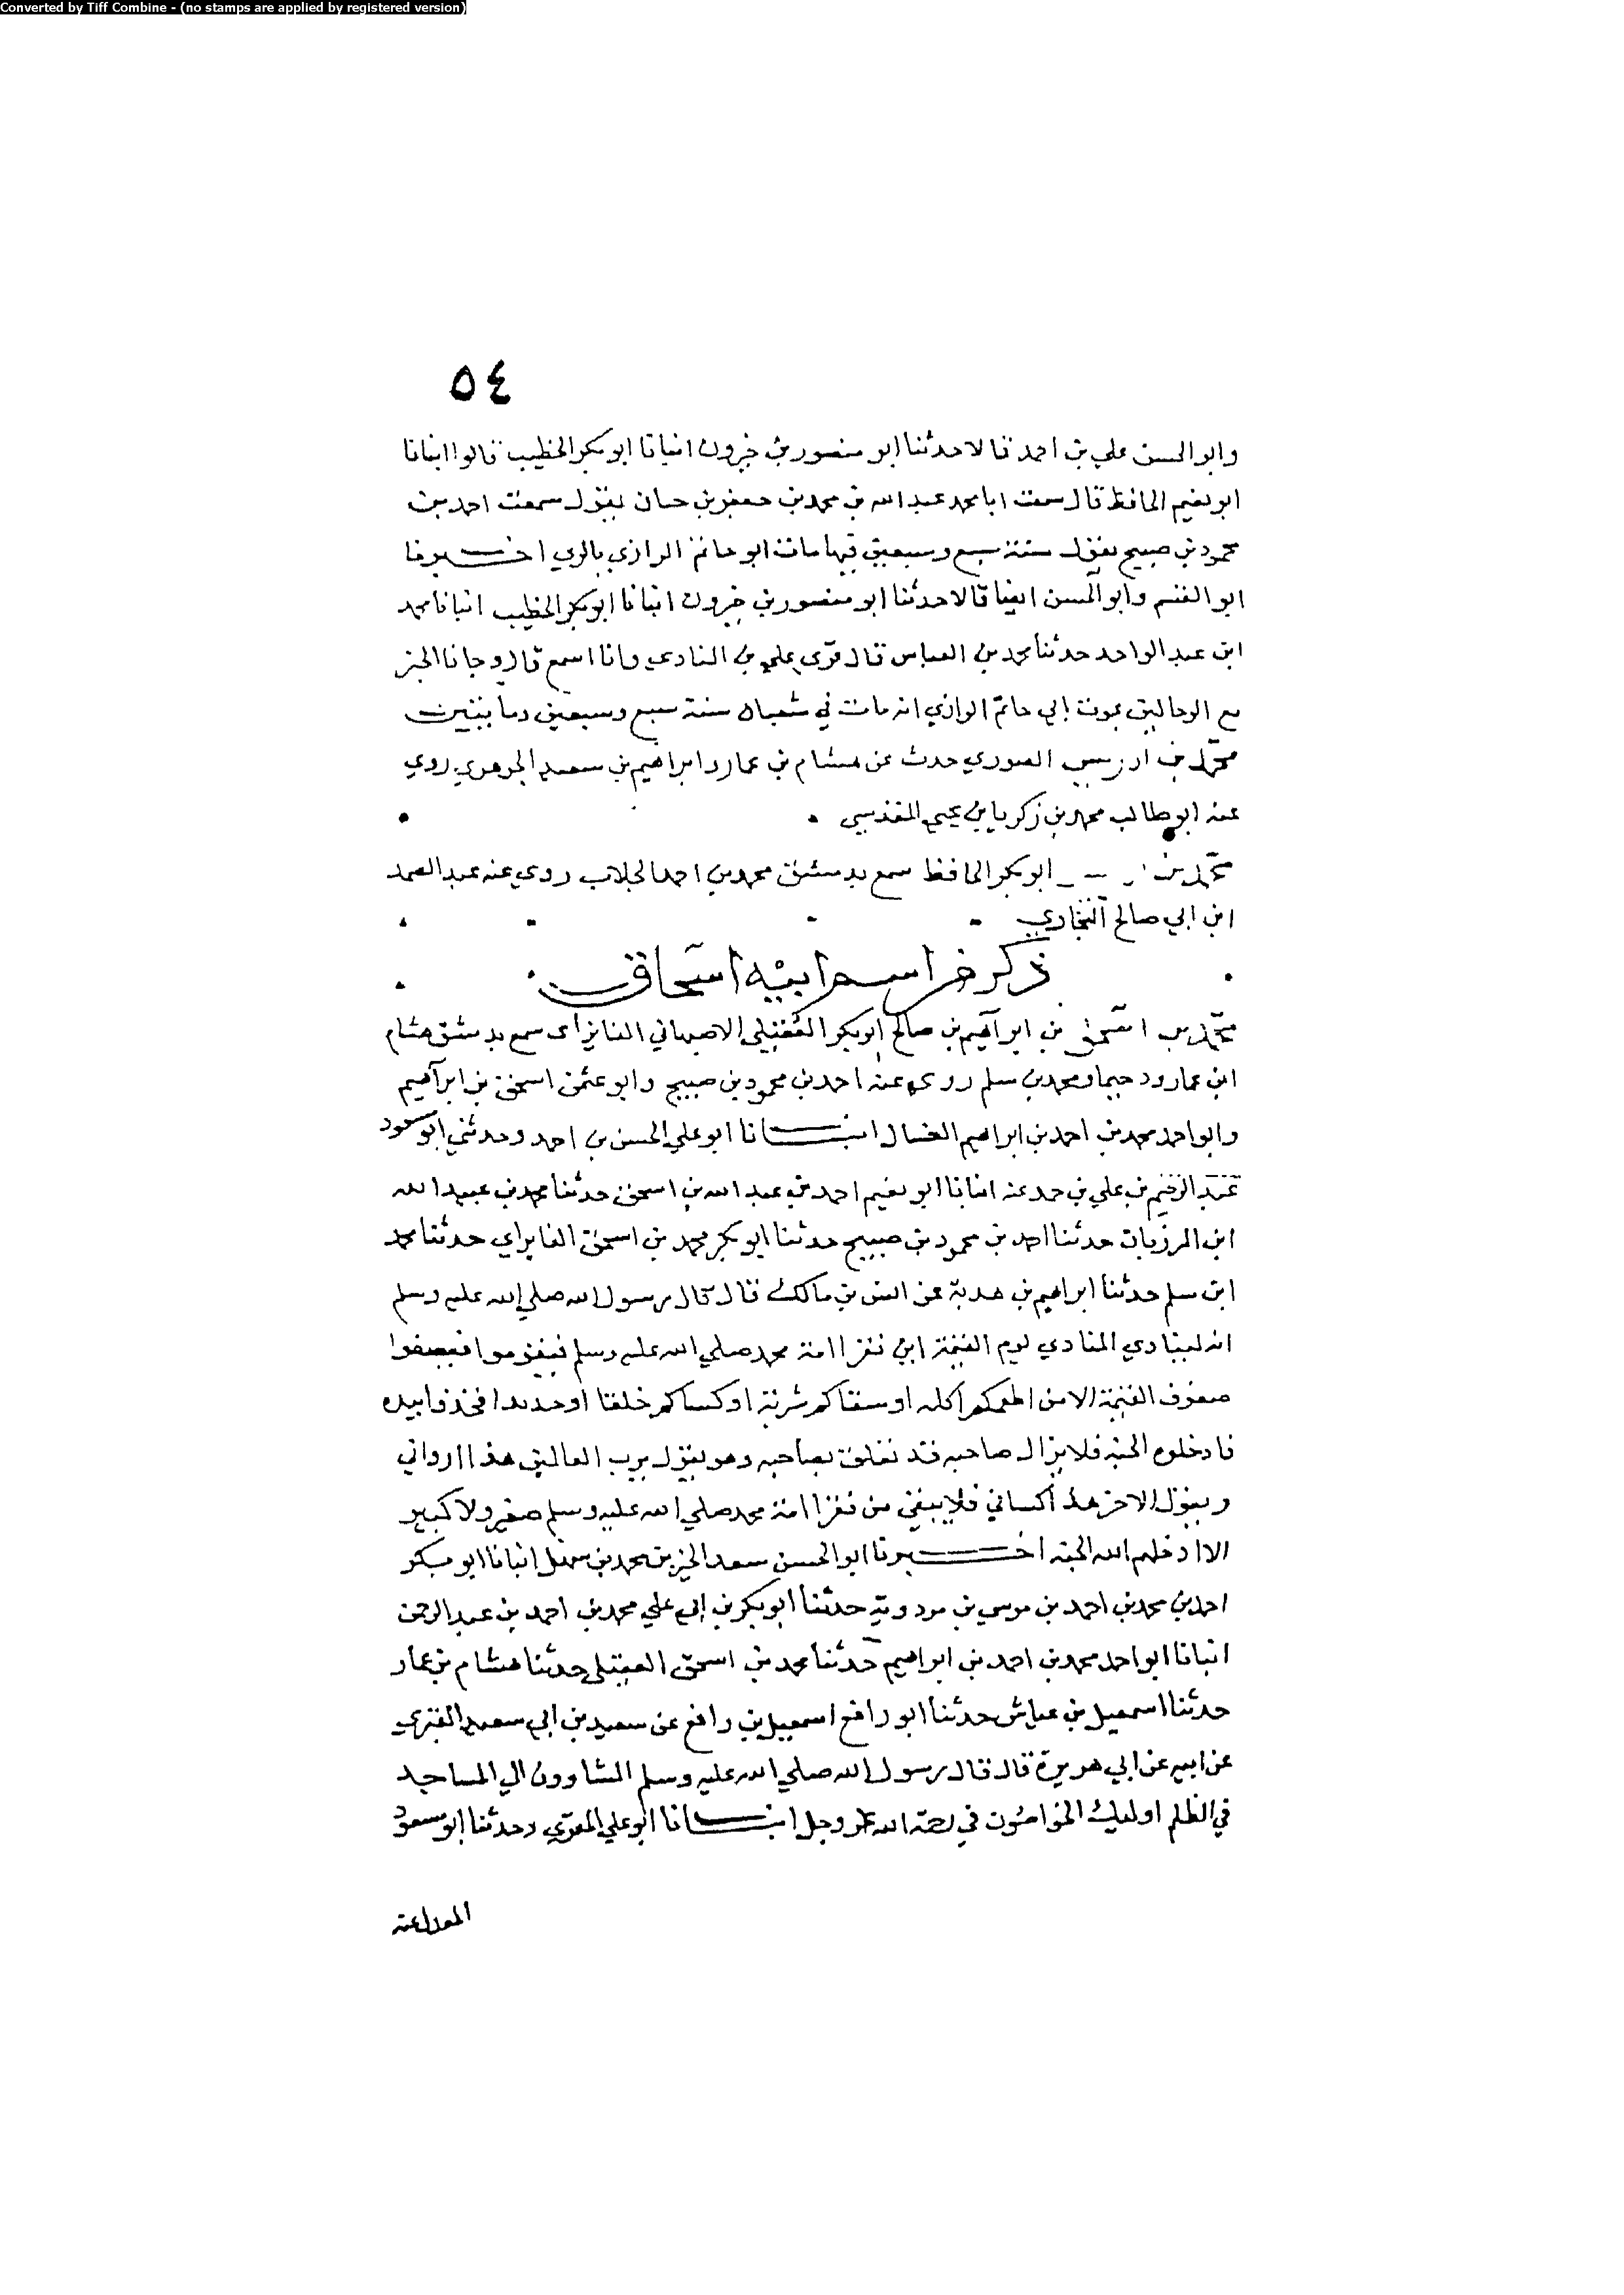 Converted by Tiff Combine - (no stamps are applied by registered version)
٥٤
وابو الحسن علي بن احمد قالا حدثنا ابو منصور بن خيرون انبانا ابو بكر الخطيب قالوا انبانا
ابو نعيم الحافظ قال سمعت ابا محمد عبد الله بن محمد بن جعفر بن حيان يقول سمعت احمد بن
محمود بن صبيح يقول سنة سبع وسبعين فيها مات ابو حاتم الرازي بالري اخبرنا
ابو القسم وابو الحسن ايضا قالا حدثنا ابو منصور بن خيرون انبانا ابو بكر الخطيب انبانا محمد
ابن عبد الواحد حدثنا محمد بن العباس قال قرى علي بن المنادي وانا اسمع قال وجانا الخبر
مع الرحالين بموت ابي حاتم الرازي انه مات في شعبان سنة سبع وسبعين ومايتين
محمد بن ادريس الصوري حدث عن هشام بن عمار وابراهيم بن سعيد الجوهري روي
عنه ابو طالب محمد بن زكريا بن يحيى المقدسي
محمد بن ابو بكر الحافظ سمع بدمشق محمد بن احمد الجلاب روي عنه عبد الصمد
ابن ابي صالح البخاري
ذكر من اسم ابيه اسحاق
محمد بن اسحق بن ابراهيم بن صالح ابو بكر العقيلي الاصبهاني سمع بدمشق هشام
ابن عمار ودحيما ومحمد بن سلم روى عنه احمد بن محمود بن صبيح وابو عثمن اسحق بن ابراهيم
وابو احمد محمد بن احمد بن ابراهيم العسال انبانا ابو علي الحسن بن احمد وحدثني ابو مسعود
عبد الرحيم بن علي بن حمد عنه انبانا ابو نعيم احمد بن عبد الله بن اسحق حدثنا محمد بن عبيد الله
ابن المرزبان حدثنا احمد بن محمود بن صبيح حدثنا ابو بكر محمد بن اسحق حدثنا محمد
ابن سلم حدثنا ابراهيم بن هدبة عن انس بن مالك قال قال رسول الله صلي الله عليه وسلم
انه لينادي المنادي يوم القيمة اين فقرا امة محمد صلي الله عليه وسلم فيقوموا فيصفوا
صفوف القيمة الا من اطعمكم اكله او سقاكم شربة او كساكم خلقا او جديدا فخذوا بيده
فادخلوه الجنة فلا يزال صاحبه قد تعلق بصاحبه وهو يقول يرب العالمين هذا ارواني
ويقول الاخر هذا كساني فلا يبقى من فقرا امة محمد صلي الله عليه وسلم صغير ولا كبير
الا ادخلهم الله الجنة اخبرنا ابو الحسن سعد الخير بن محمد بن سهل انبانا ابو بكر
احمد بن محمد بن احمد بن موسي بن مردويه حدثنا ابو بكر بن ابي علي محمد بن احمد بن عبد الرحمن
انبانا ابو احمد محمد بن احمد بن ابراهيم حدثنا محمد بن اسحق العقيلي حدثنا هشام بن عمار
حدثنا اسمعيل بن عياش حدثنا ابو رافع اسمعيل بن رافع عن سعيد بن ابي سعيد المقبري
عن ابيه عن ابي هريرة قال قال رسول الله صلي الله عليه وسلم المشاوون الي المساجد
في الظلم اوليك الخواضون في رحمة الله عز وجل انبانا ابو علي المقري وحدثنا ابو مسعود
المعدل عنه